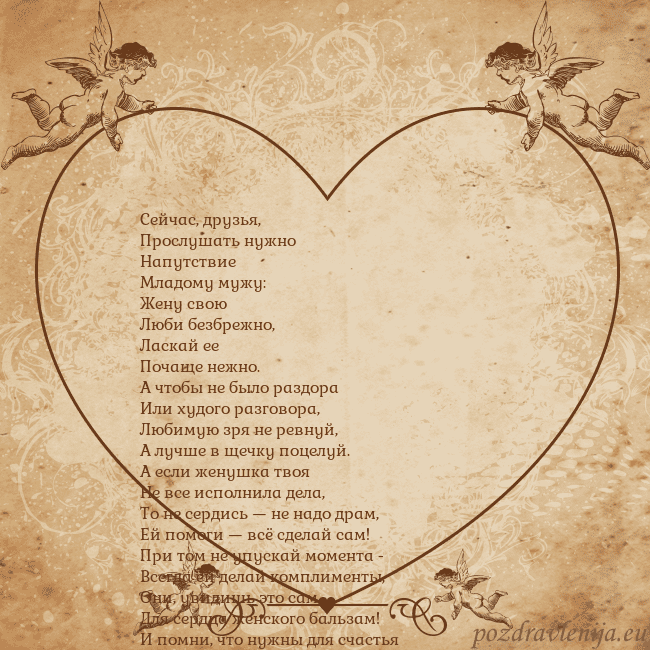 Сейчас, друзья,
Прослушать нужно
Напутствие
Младому мужу:
Жену свою
Люби безбрежно,
Ласкай ее
Почаще нежно.
А чтобы не было раздора
Или худого разговора,
Любимую зря не ревнуй,
А лучше в щечку поцелуй.
А если женушка твоя
Не все исполнила дела,
То не сердись — не надо драм,
Ей помоги — всё сделай сам!
При том не упускай момента -
Всегда ей делай комплименты,
Они, увидишь это сам,
Для сердца женского бальзам!
И помни, что нужны для счастья
pozdravlenija.eu